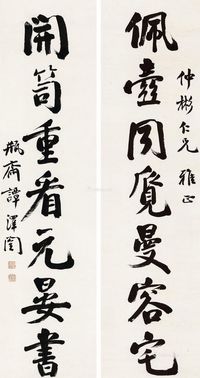 仲彬仁兄 雅正
佩壺同覓曼容宅
開笥重看元晏書
瓶齋譚澤闓